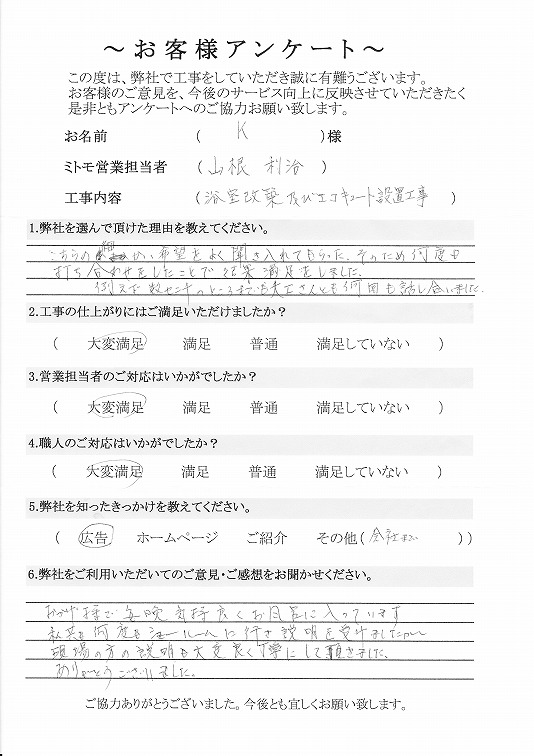 ～お客様アンケート～
この度は、弊社で工事をしていただき誠に有難うございます。
お客様のご意見を、今後のサービス向上に反映させていただきたく
是非ともアンケートへのご協力お願い致します。
お名前 ( K )様
ミトモ営業担当者 ( 山根 利浴 )
工事内容 ( 浴室改築及びエコキュート設置工事 )
1.弊社を選んで頂けた理由を教えてください。
こちらの 細かい希望をよく聞き入れてもらった。そのため何度も
打ち合わせをしたことで結果満足をしました。
例えば数センチのところまでも大工さんとも何回も話し合いました.
2.工事の仕上がりにはご満足いただけましたか？
( 大変満足 満足 普通 満足していない )
3.営業担当者のご対応はいかがでしたか？
( 大変満足 満足 普通 満足していない )
4.職人のご対応はいかがでしたか？
( 大変満足 満足 普通 満足していない )
5.弊社を知ったきっかけを教えてください。
( 広告 ホームページ ご紹介 その他( 会社まで ))
6.弊社をご利用いただいてのご意見・ご感想をお聞かせください。
おかげ様で毎晩気持良くお風呂に入っています
私共も何度もショールームに行き説明を受けましたが
現場の方の説明も大変良く丁寧にして頂きました、
ありがとうございました.
ご協力ありがとうございました。今後とも宜しくお願い致します。